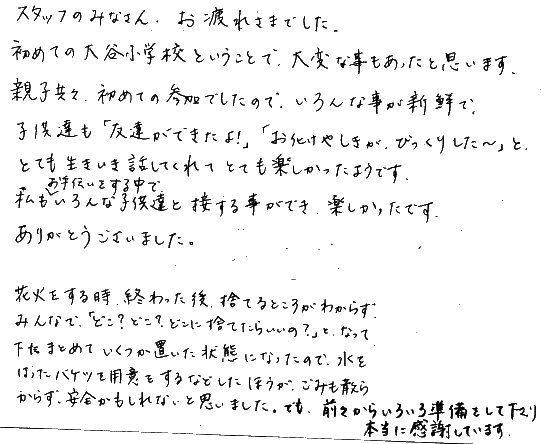 スタッフのみなさん、お疲れさまでした。
初めての大谷小学校ということで、大変な事もあったと思います。
親子共々、初めての参加でしたので、いろんな事が新鮮で、
子供達も「友達ができたよ!」「お化けやしきが、びっくりした〜」と、
とても生きいき話してくれてとても楽しかったようです。
お手伝いをする中で
私もいろんな子供達と接する事ができ、楽しかったです。
ありがとうございました。
花火をする時、終わった後、捨てるところがわからず、
みんなで、「どこ?どこ?どこに捨てたらいいの?」と、なって
下にまとめていくつか置いた状態になったので、水を
はったバケツを用意をするなどしたほうが、ごみも散ら
からず、安全かもしれないと思いました。でも、前々からいろいろ準備をして下さり
本当に感謝しています。